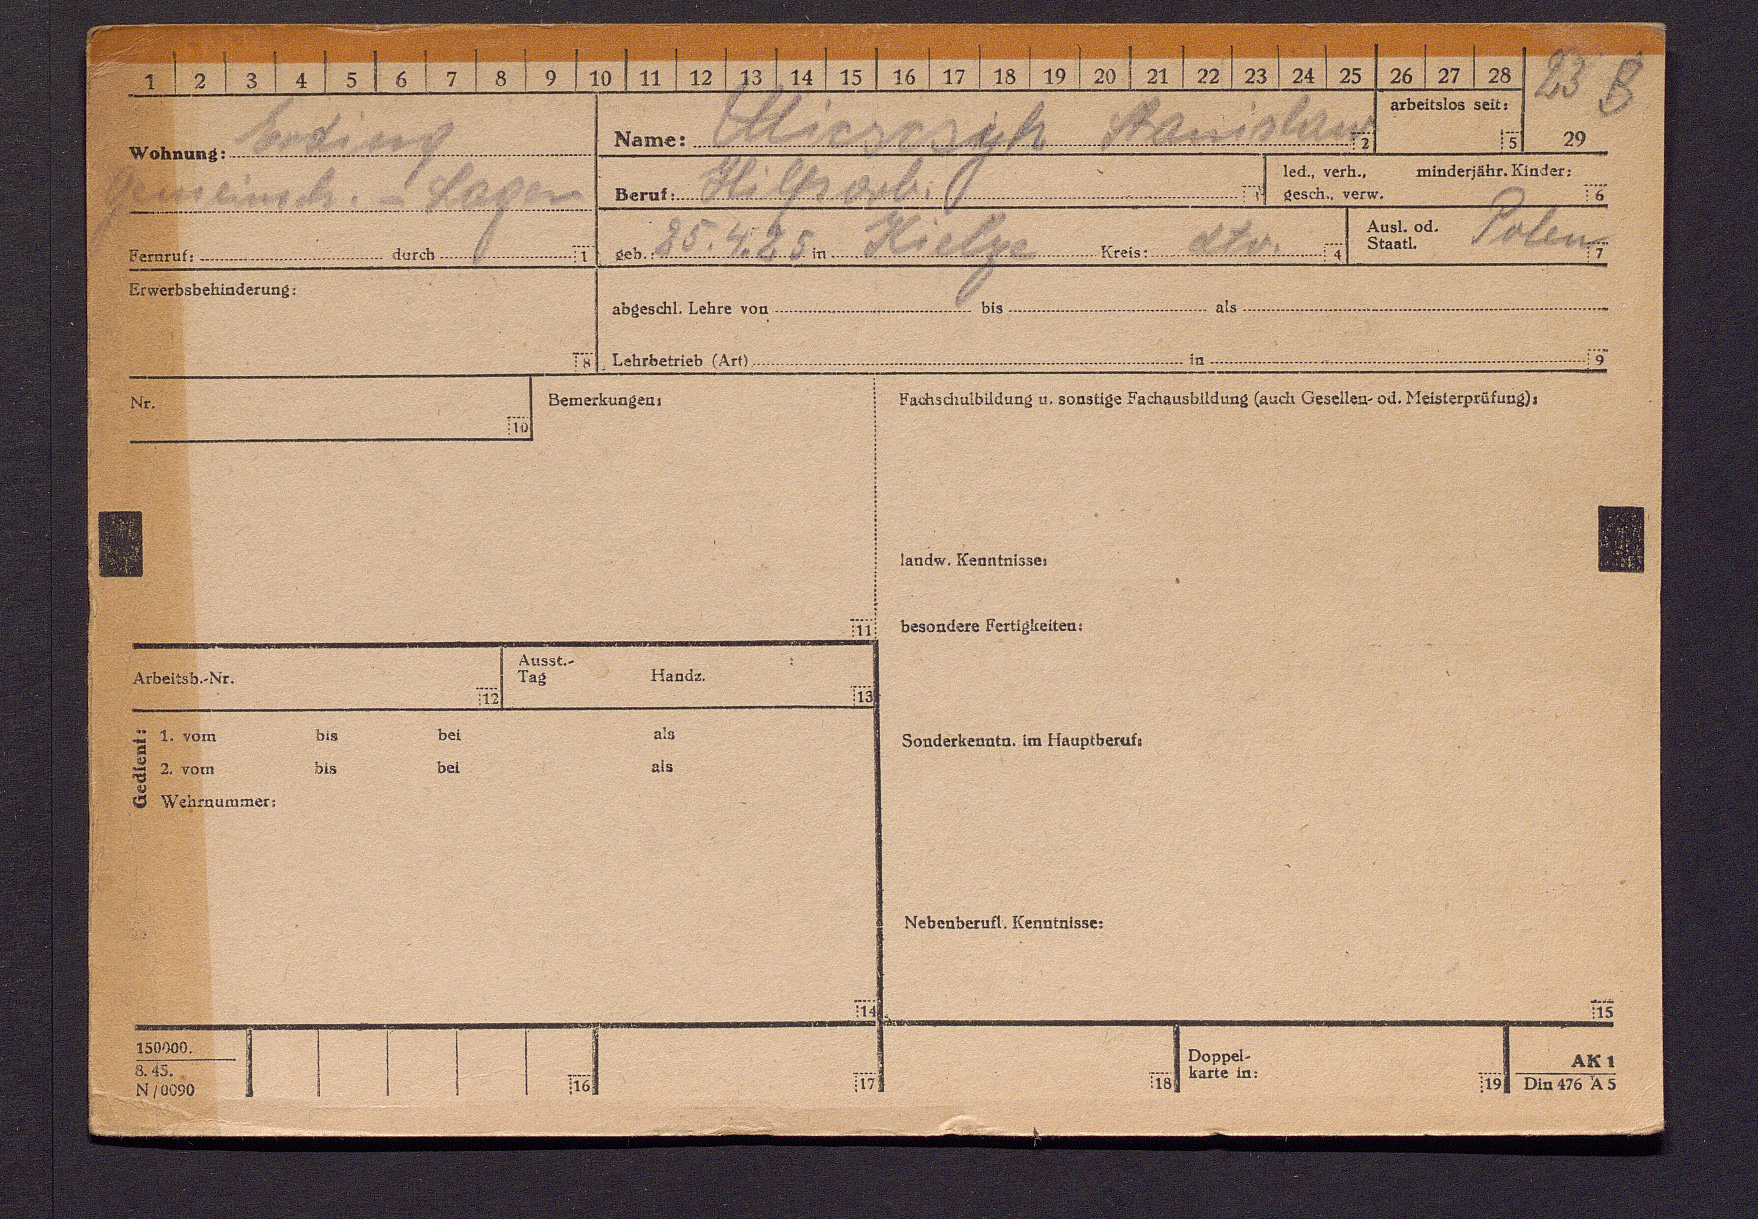 1 2 3 4 5 6 7 8 9 10 11 12 13 14 15 16 17 18 19 20 21 22 23 24 25 26 27 28 23 B
Wohnung: Erding
Gemeinsch. - Lager
Fernruf: durch 1
Name: Stanislaw 2
arbeitslos seit: 5
29
Beruf: Hilfsarb. 3
led., verh., minderjähr. Kinder:
gesch., verw. 6
geb.: 25.4.25 in Kielze Kreis: dto. 4
Ausl. od.
Staatl. Polen 7
Erwerbsbehinderung:
8
abgeschl. Lehre von bis als
Lehrbetrieb (Art) in 9
Nr.
10
Bemerkungen:
11
Fachschulbildung u. sonstige Fachausbildung (auch Gesellen- od. Meisterprüfung):
landw. Kenntnisse:
besondere Fertigkeiten:
Sonderkenntn. im Hauptberuf:
Nebenberufl. Kenntnisse:
15
Arbeitsb.-Nr.
12
Ausst.-
Tag Handz. :
13
Gedient:
1. vom bis bei als
2. vom bis bei als
Wehrnummer:
14
150000.
8. 45.
N/0090
16
17
18
Doppel-
karte in:
19
AK 1
Din 476 A 5